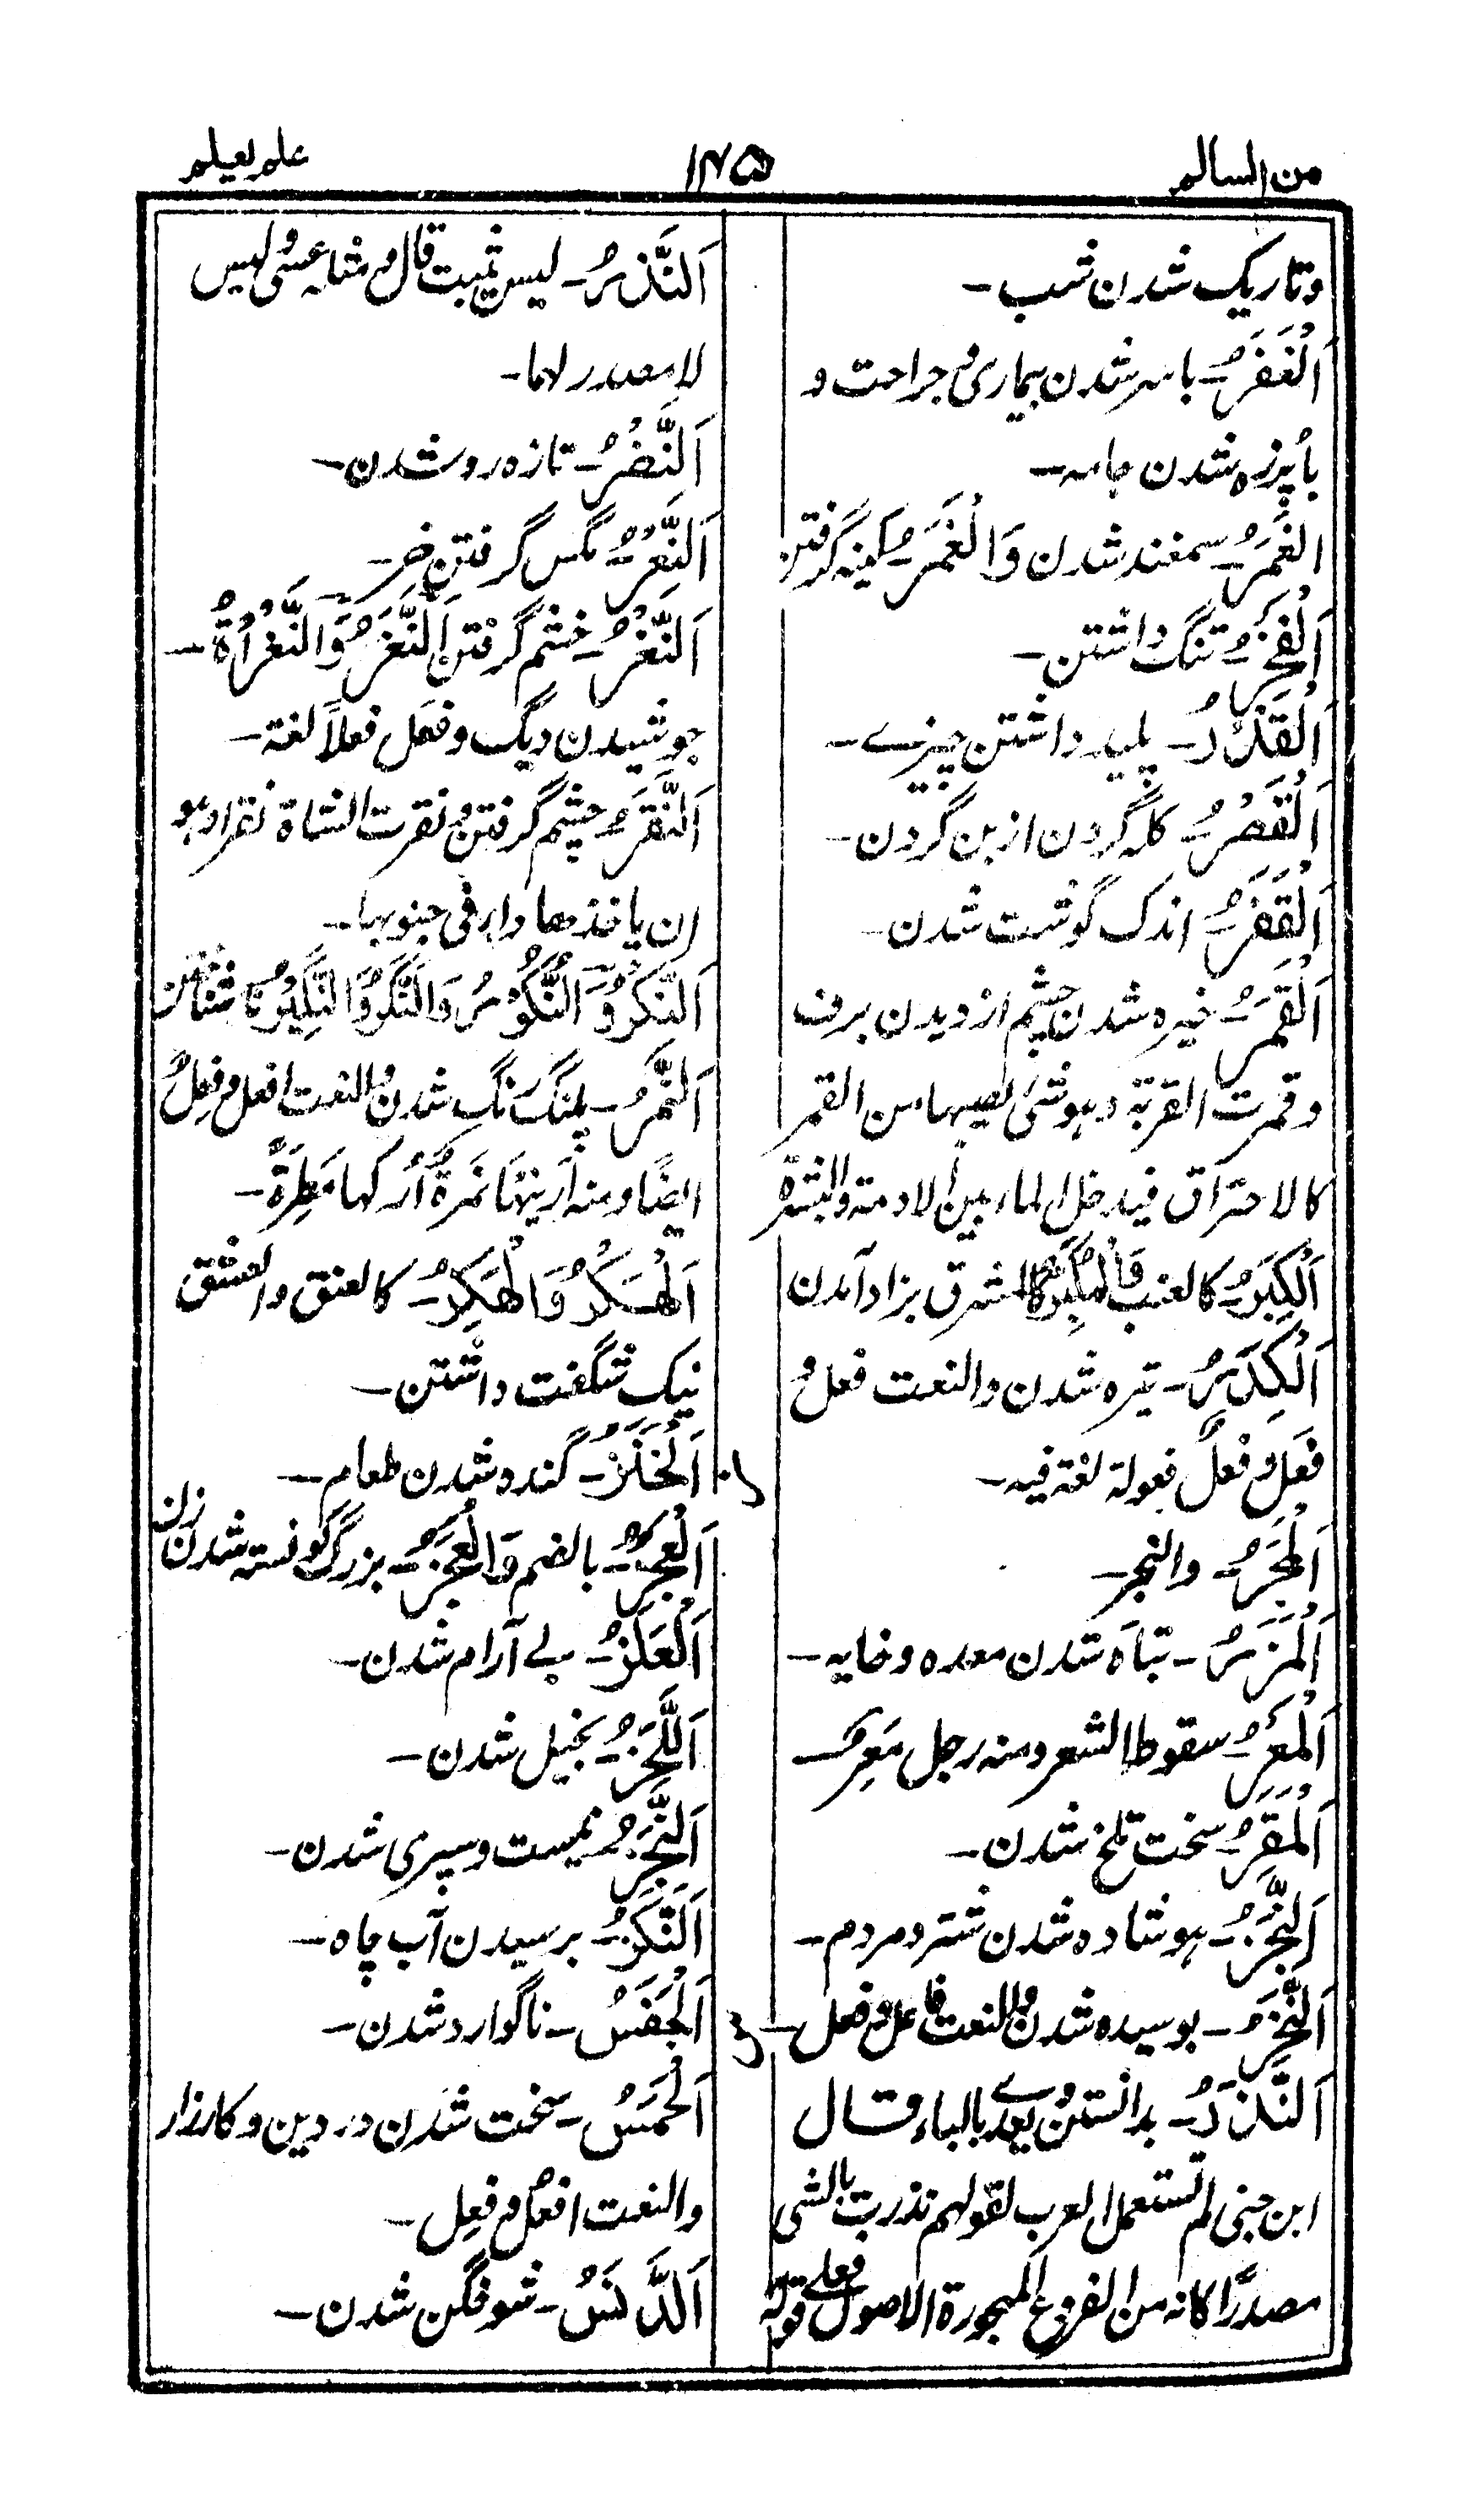 من السالم
١٢٥
علم يعلم
وتاریک شدن شب۔
اَلْغَفَرُ۔ باسر شدن بیماری و جراحت و
باپرزه شدن جامه۔
الغَمَرُ۔ سمغند شدن وَالْغَمَرُ۔ کینه گرفتن
تنگ داشتن۔
اَلْقَذَرُ۔ پلید داشتن چیزے۔
اَلْقَصَرُ۔ کله گردن از بن گردن۔
اَلْقَفَرُ۔ اندک گوشت شدن۔
اَلْقَمَرُ۔ خیره شدن چشم از دیدن برف
وقمرت القربة وهو شئ یصیبها من القمر
کالاحتراق فیدخل الماء بین الادمة والبشرة
اَلْكِبَرُ۔ کالعنب کالمشرق بزاد آمدن
اَلْكَدَرُ۔ تیره شدن والنعت فعل و
فَعَل و فعلٌ فعولة لغة فیه۔
اَلْمَجَرُ۔ والنجر۔
اَلْمَزَرُ۔ تباه شدن معده و خایه۔
اَلْمَعَرُ۔ سقوط الشعر ومنه رجل مَعِر
اَلْمَقَرُ۔ سخت تلخ شدن۔
اَلنَّجَرُ۔ شدن شتر و مردم۔
اَلنَّخَرُ۔ بوسیده شدن والنعت فاعل و فعل۔
اَلنَّذَرُ۔ بدانستن و یعدے بالباء وقال
ابن جنی لم تستعمل العرب لقولهم نذرت بالشی
مصدرًا کانه من الفروع المهجورة الاصول فعلے قوله
اَلنَّذَرُ۔ لیس یثبت قال و مثله عسی و لیس
لا مصدر لهما۔
اَلنَّضَرُ۔ تازه رو شدن۔
اَلنَّعَرُ۔ مگس گرفتن خر۔
اَلنَّغَرُ۔ خشم گرفتن اَلنَّغَرُ وَالنَّغْرَاةُ۔
جوشیدن دیگ وفعَل فعلاً لغة۔
اَلنَّقَرُ۔ چشم گرفتن و نقرت الشاة نقرا وهو
ان یاخذها داء فی جنوبها۔
اَلنَّكَرُ وَ اَلنُّكُوْرُ وَالنُّكْرُ وَالنَّكِيْرُ ناشناختن
اَلنَّمَرُ۔ پلنگ رنگ شدن والنعت افعل و فعِلٌ
ایضًا ومنه اَرِنِيْهَا نَمِرَةً اُرِكَهَا مَطِرَةً۔
اَلْهَكْرُ وَالْهَكَرُ۔ کالعنق والعشق
نیک شگفت داشتن۔
ز
اَلْخَنَزُ۔ گنده شدن طعام۔
اَلْعُجْزُ۔ بالضم وَالْعَجَزُ۔ بزرگ گونسته شدن زن
اَلْعَلَزُ۔ بے آرام شدن۔
اَللَّحَزُ۔ بخیل شدن۔
اَلنَّجَزُ۔ نیست و سپری شدن۔
اَلنَّكَزُ۔ برسیدن آب چاه۔
س
اَلْجَفَسُ۔ ناگوارد شدن۔
اَلْحَمَسُ۔ سخت شدن در دین و کارزار
والنعت افعلٌ و فعِل۔
اَلدَّنَسُ۔ شوخگن شدن۔